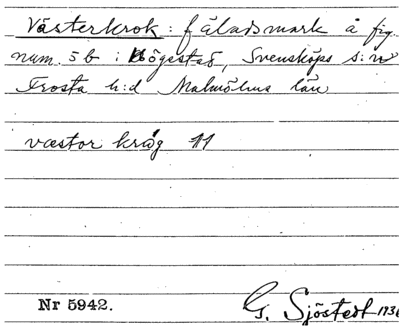 Västerkrok: fäladsmark å fig.
num. 5b i Högestad, Svensköps s:n
Frosta h:d Malmöhus län
væstor kråg 11
Nr 5942.
G. Sjöstedt 1936